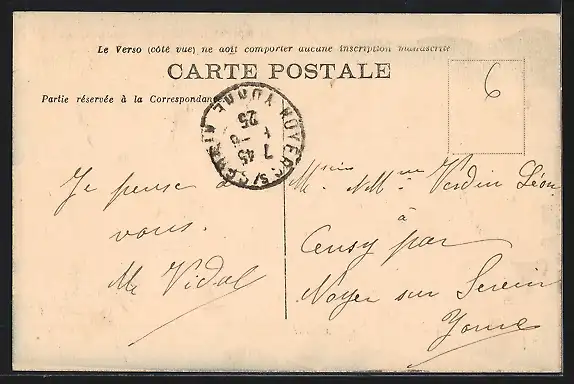 Le Verso (côté vue) ne doit comporter aucune inscription manuscrite
CARTE POSTALE
Partie réservée à la Correspondance
6
NOYERS S/ SEREIN YONNE
7 45
1 -8
25
Je pense à
vous.
M Vidal
Verdin Léon
à
Censy par
Noyer sur Serein
Yonne